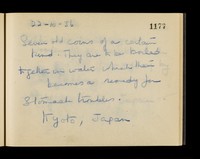 22-10-36
1177
Seven old coins of a certain
kind. They are to be boiled
together in water which then
becomes a remedy for
stomach troubles.
Kyoto, Japan